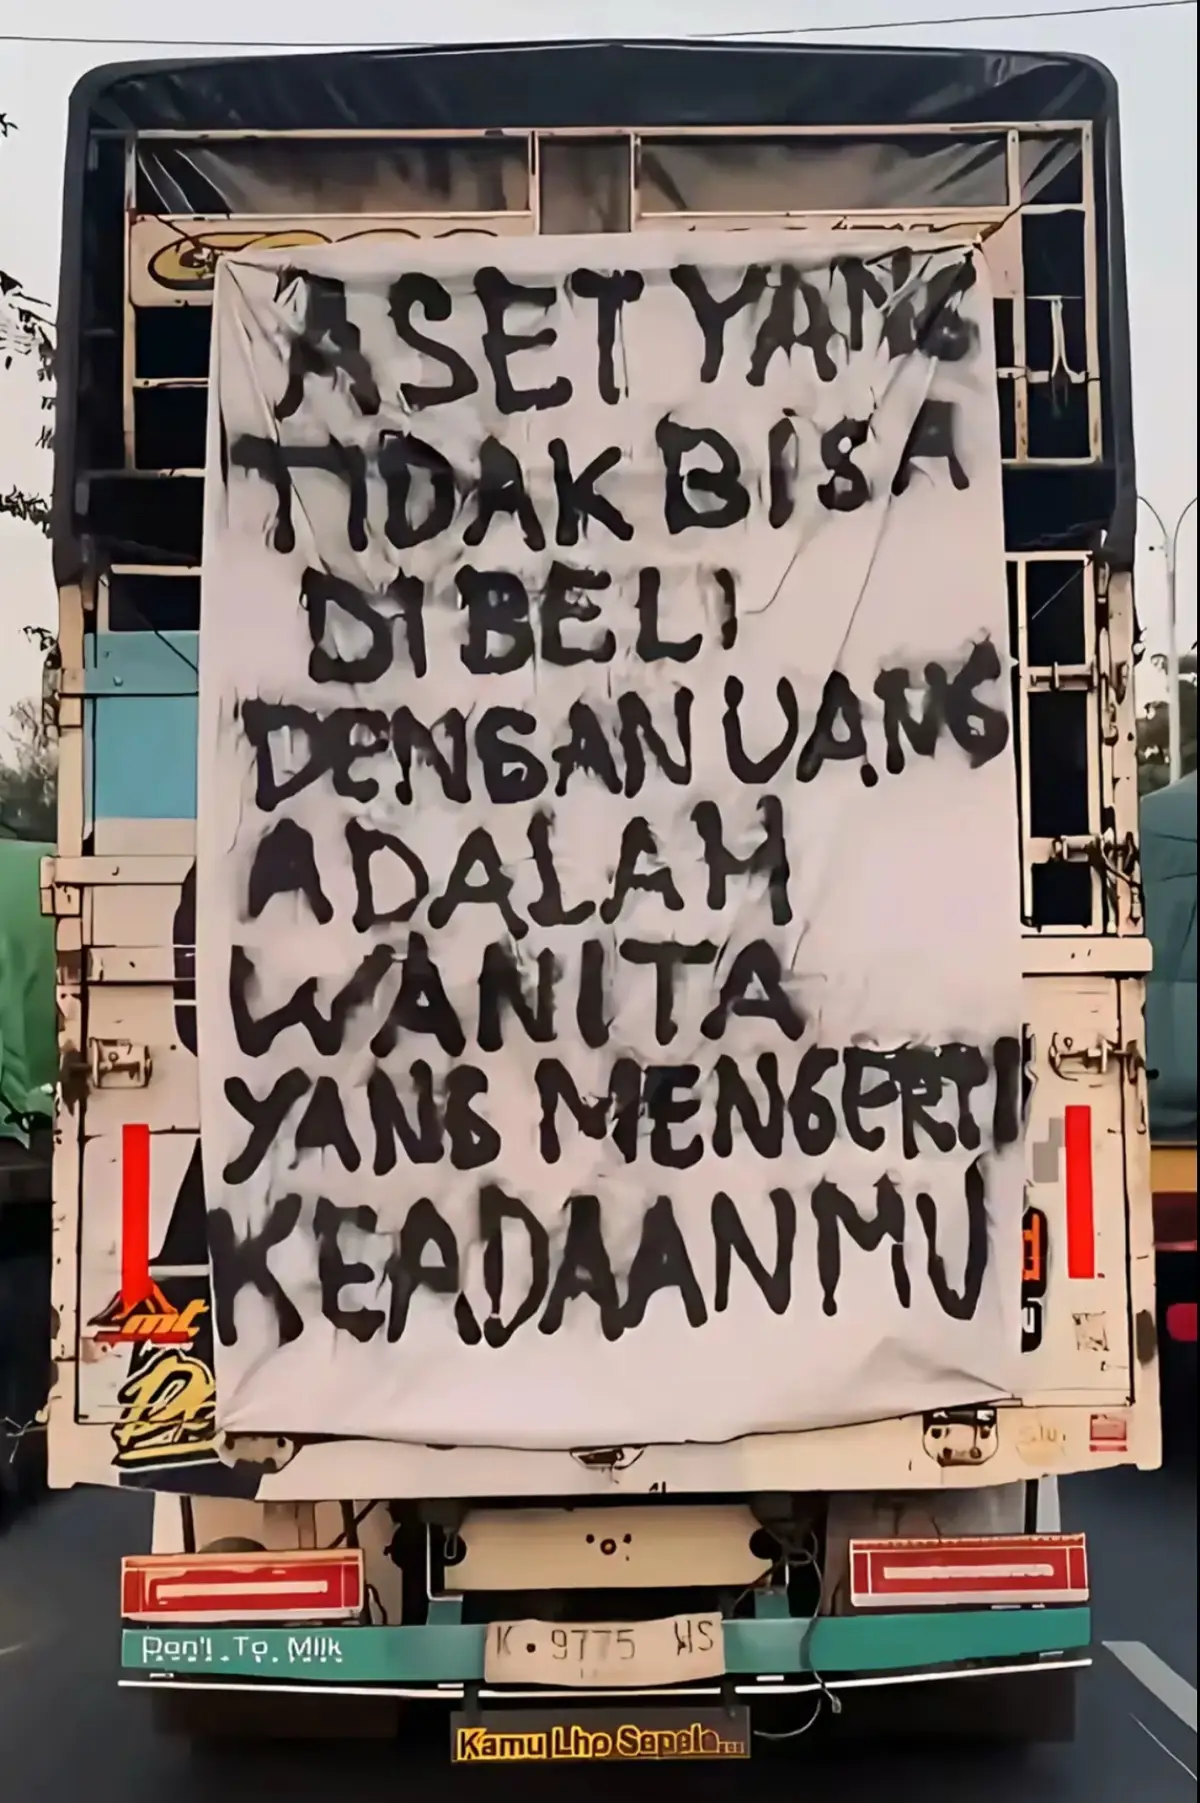 ASET YANG
TIDAK BISA
DIBELI
DENGAN UANG
ADALAH
WANITA
YANG MENGERTI
KEADAANMU
mt
Don't To Milk
K 9775 WS
Kamu Lho Sepele...